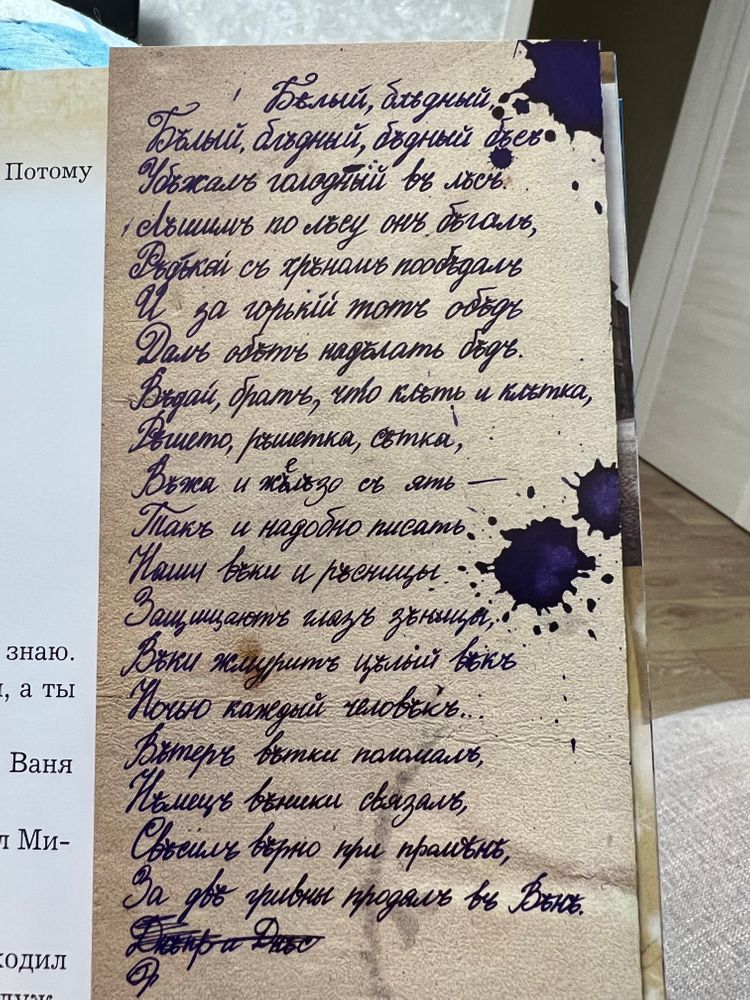 Потому
знаю.
, а ты
Ваня
л Ми-
ходил
Бѣлый, блѣдный,
Бѣлый, блѣдный, бѣдный бѣсъ
Убѣжалъ голодный въ лѣсъ.
Лѣшимъ по лѣсу онъ бѣгалъ,
Рѣдькой съ хрѣномъ пообѣдалъ
И за горькій тотъ обѣдъ
Далъ обѣтъ надѣлать бѣдъ.
Вѣдай, братъ, что клѣть и клѣтка,
Рѣшето, рѣшетка, сѣтка,
Вѣжа и желѣзо съ ять —
Такъ и надобно писать.
Наши вѣки и рѣсницы
Защищаютъ глазъ зѣницы,
Вѣки жмуритъ цѣлый вѣкъ
Ночью каждый человѣкъ...
Вѣтеръ вѣтки поломалъ,
Нѣмецъ вѣники связалъ,
Свѣсилъ вѣрно при промѣнѣ,
За двѣ гривны продалъ въ Вѣнѣ.
Днѣпръ и Днѣс